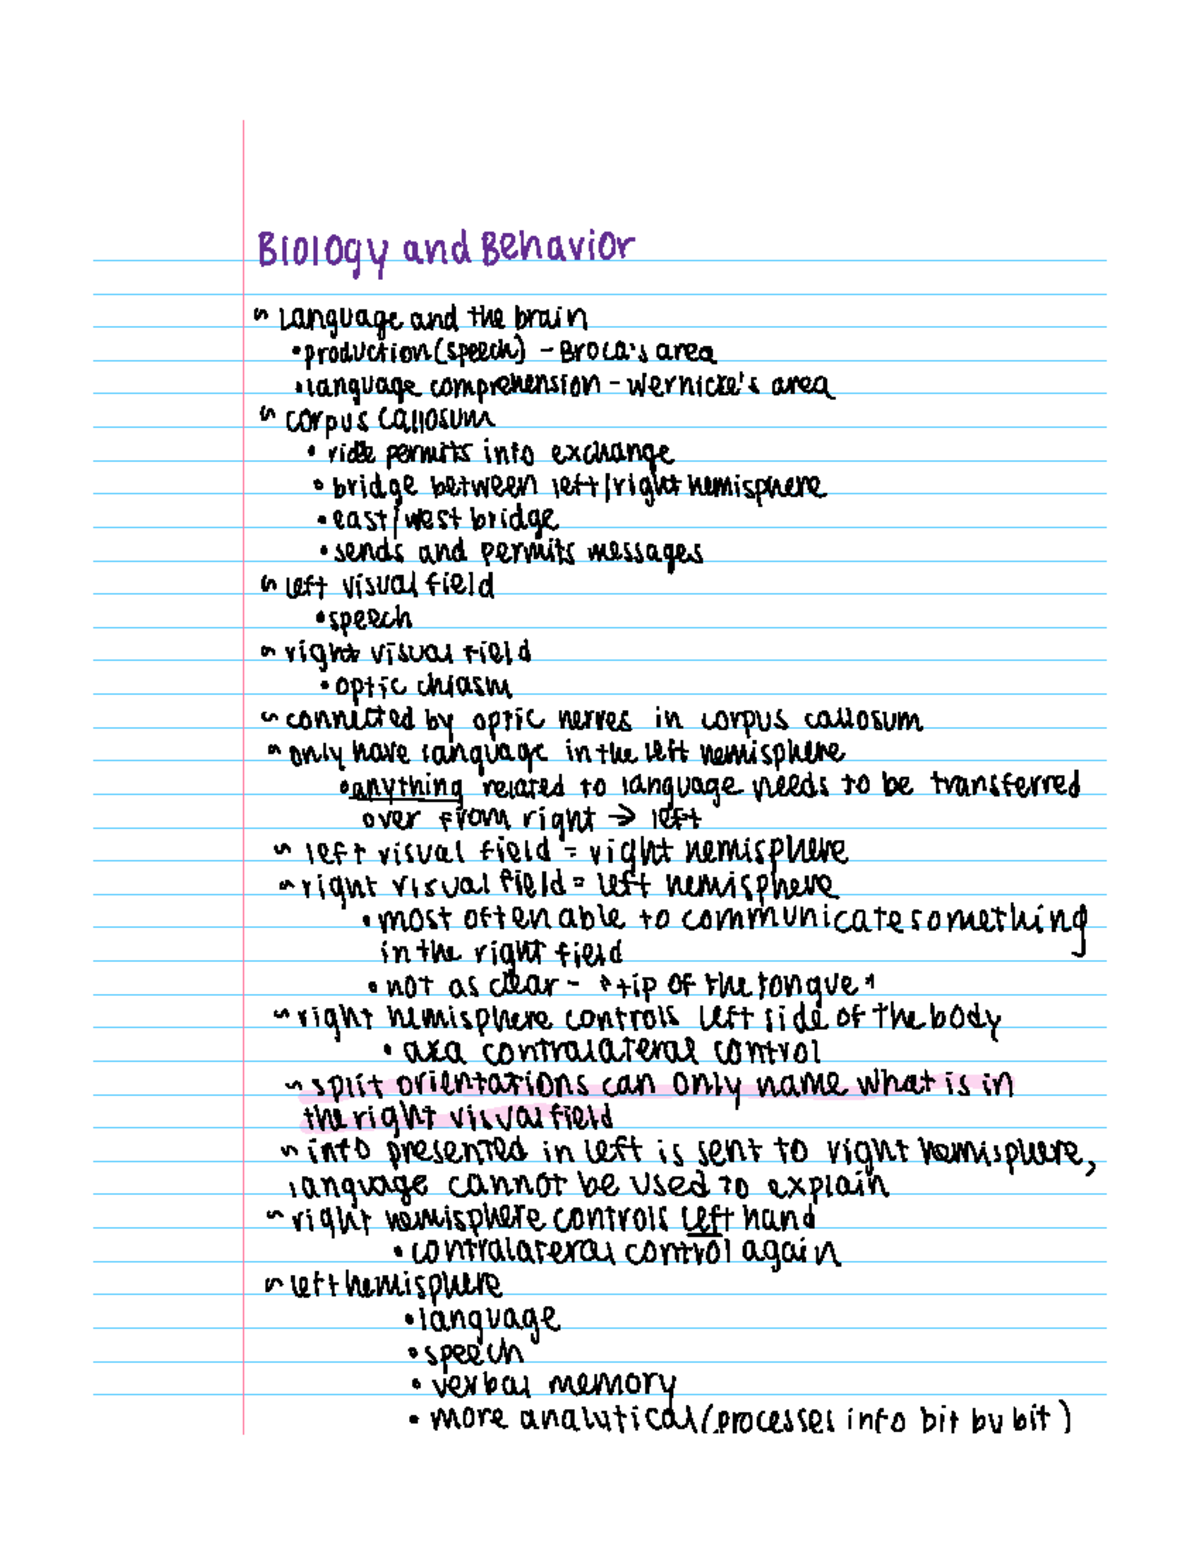 Biology and Behavior
~ Language and the brain
• production (speech) - Broca's area
• language comprehension - Wernicke's area
~ corpus callosum
• permits info exchange
• bridge between left/right hemisphere
• east/west bridge
• sends and permits messages
~ left visual field
• speech
~ right visual field
• optic chiasm
~ connected by optic nerves in corpus callosum
~ only have language in the left hemisphere
• anything related to language needs to be transferred
over from right → left
~ left visual field = right hemisphere
~ right visual field = left hemisphere
• most often able to communicate something
in the right field
• not as clear - "tip of the tongue"
~ right hemisphere controls left side of the body
• aka contralateral control
~ split orientations can only name what is in
the right visual field
~ info presented in left is sent to right hemisphere,
language cannot be used to explain
~ right hemisphere controls left hand
• contralateral control again
~ left hemisphere
• language
• speech
• verbal memory
• more analytical (processes info bit by bit)